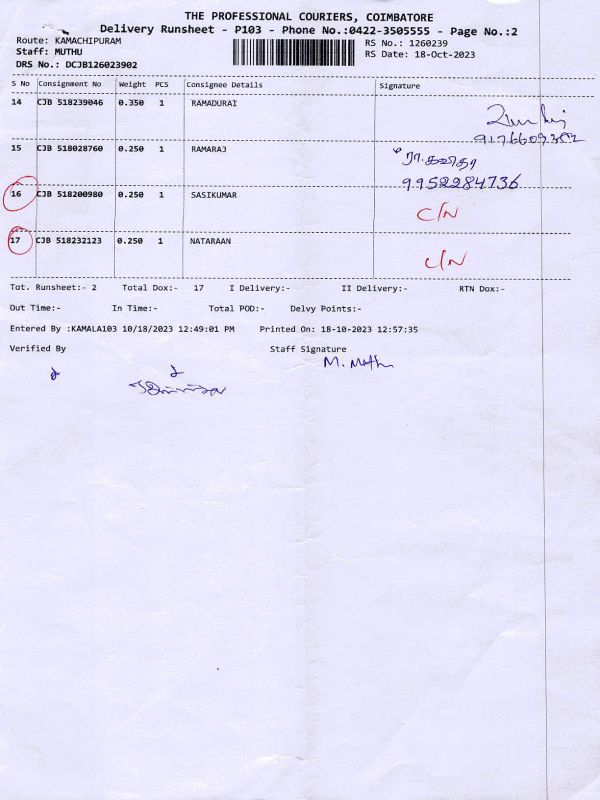 THE PROFESSIONAL COURIERS, COIMBATORE
Delivery Runsheet - P103 - Phone No.:0422-3505555 - Page No.:2
Route: KAMACHIPURAM
RS No.: 1260239
Staff: MUTHU
RS Date: 18-Oct-2023
DRS No.: DCJB126023902
S No Consignment No Weight PCS Consignee Details Signature
14 CJB 518239046 0.350 1 RAMADURAI
15 CJB 518028760 0.250 1 RAMARAJ
9952284736
16 CJB 518200980 0.250 1 SASIKUMAR C/N
17 CJB 518232123 0.250 1 NATARAAN C/N
Tot. Runsheet:- 2 Total Dox:- 17 I Delivery:- II Delivery:- RTN Dox:-
Out Time:- In Time:- Total POD:- Delvy Points:-
Entered By :KAMALA103 10/18/2023 12:49:01 PM Printed On: 18-10-2023 12:57:35
Verified By Staff Signature
M. Muthu